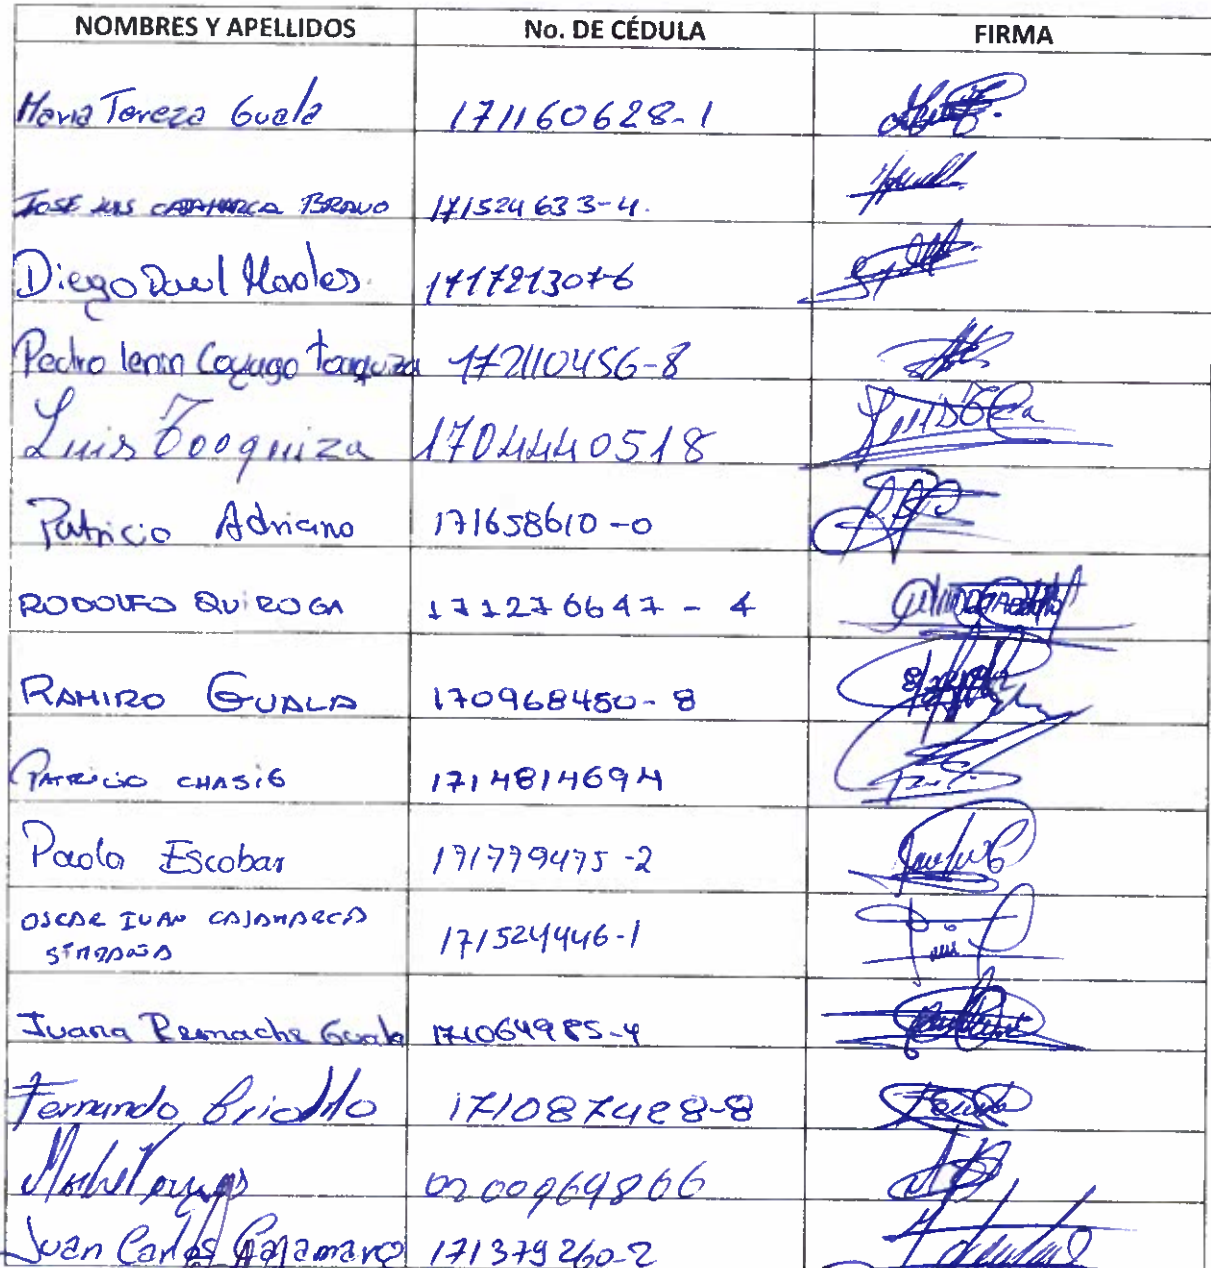 NOMBRES Y APELLIDOS No. DE CÉDULA FIRMA
Maria Tereza Guala 171160628-1
JOSE LUIS CAJAMARCA BRAVO 171524633-4.
Diego Morales 1717213076
Pedro lenin Coyago Toaquiza 172110456-8
Luis Toaquiza 1704440518
Patricio Adriano 171658610-0
RODOLFO QUIROGA 171276647-4
RAMIRO GUALA 170968450-8
PATRICIO CHASIG 1714814694
Paola Escobar 171779475-2
OSCAR IVAN CAJAMARCA 171524446-1
SIMBAÑA
Juana Remache Guala 171064985-4
Fernando 171087428-8
0200969866
Juan Carlos Cajamarca 171379260-2